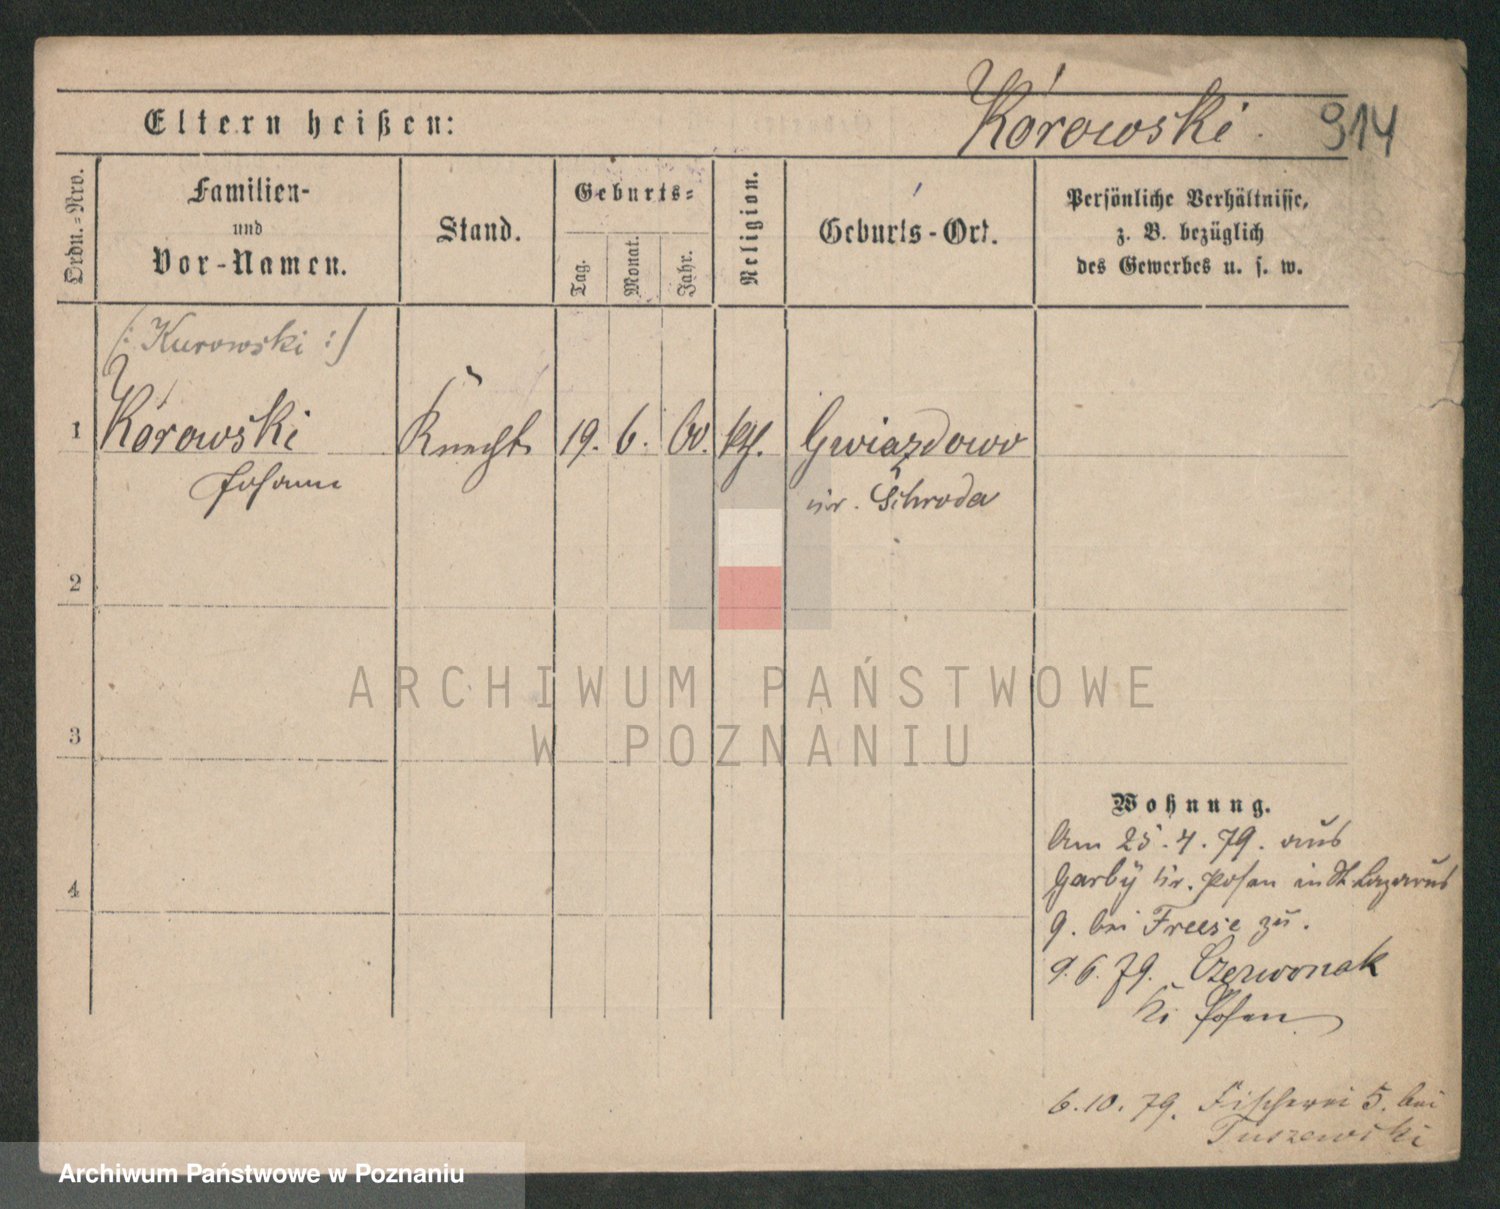 Kórowski. 914
Eltern heißen:
Ordn.-Nro.
Familien-
und
Vor-Namen.
Stand.
Geburts-
Tag.
Monat.
Jahr.
Religion.
Geburts-Ort.
Persönliche Verhältnisse,
z. B. bezüglich
des Gewerbes u. s. w.
(: Kurowski :)
1 Kórowski Knecht 19. 6. 60. kth. Gwiazdowo
Johann Kr. Schroda
2
3
4
Wohnung.
Am 25.4.79. aus
Garby Kr. Posen in St Lazarus
9. bei Freese zu.
9.6.79. Czerwonak
Kr Posen
6.10.79. Fischerei 5. bei
Tuszewski
ARCHIWUM PAŃSTWOWE
W POZNANIU
Archiwum Państwowe w Poznaniu